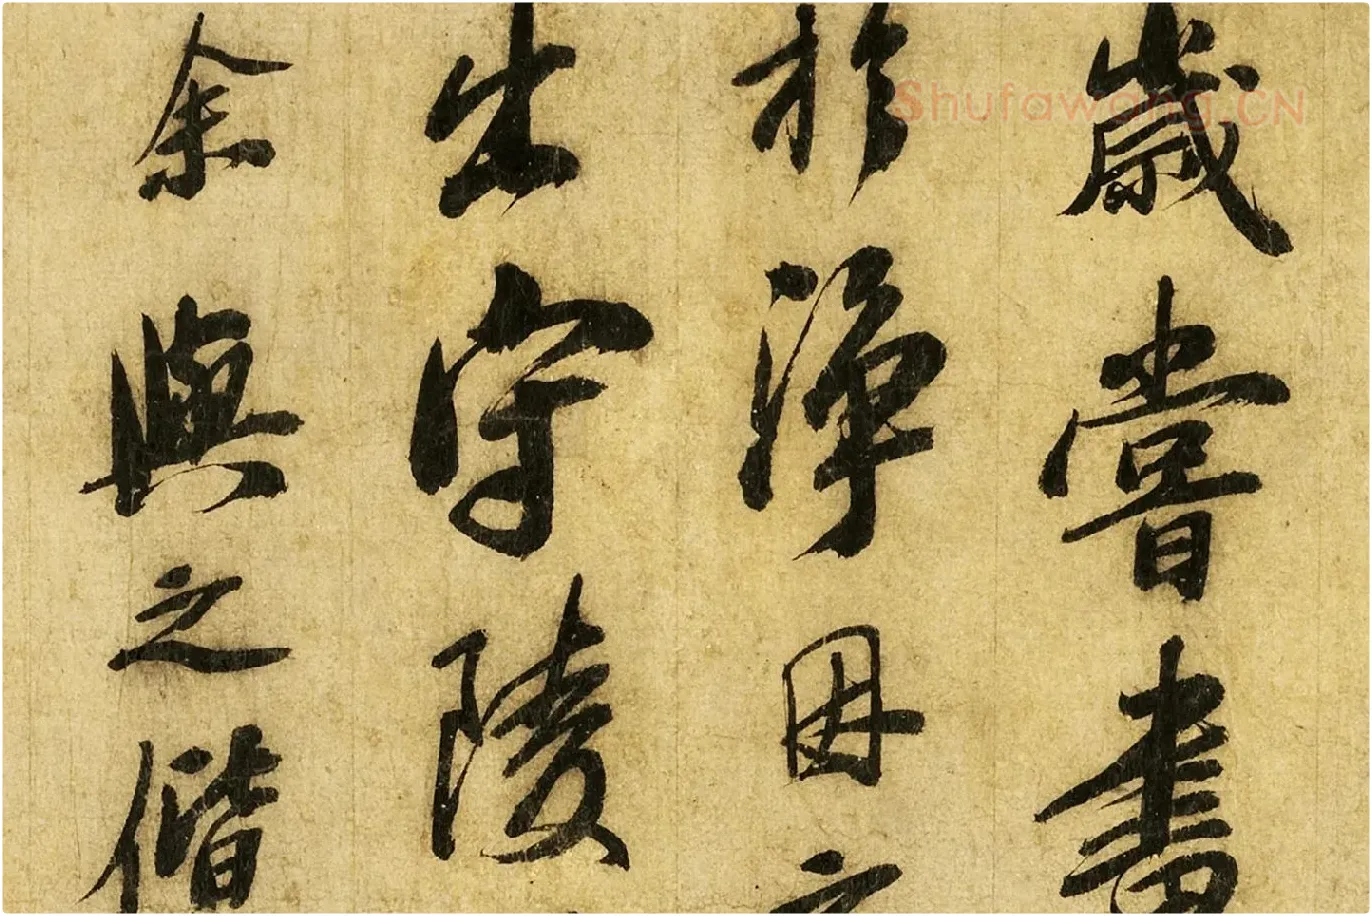 歲嘗畫
於淨因之
出守陵
余與之偕
Shufawang.CN